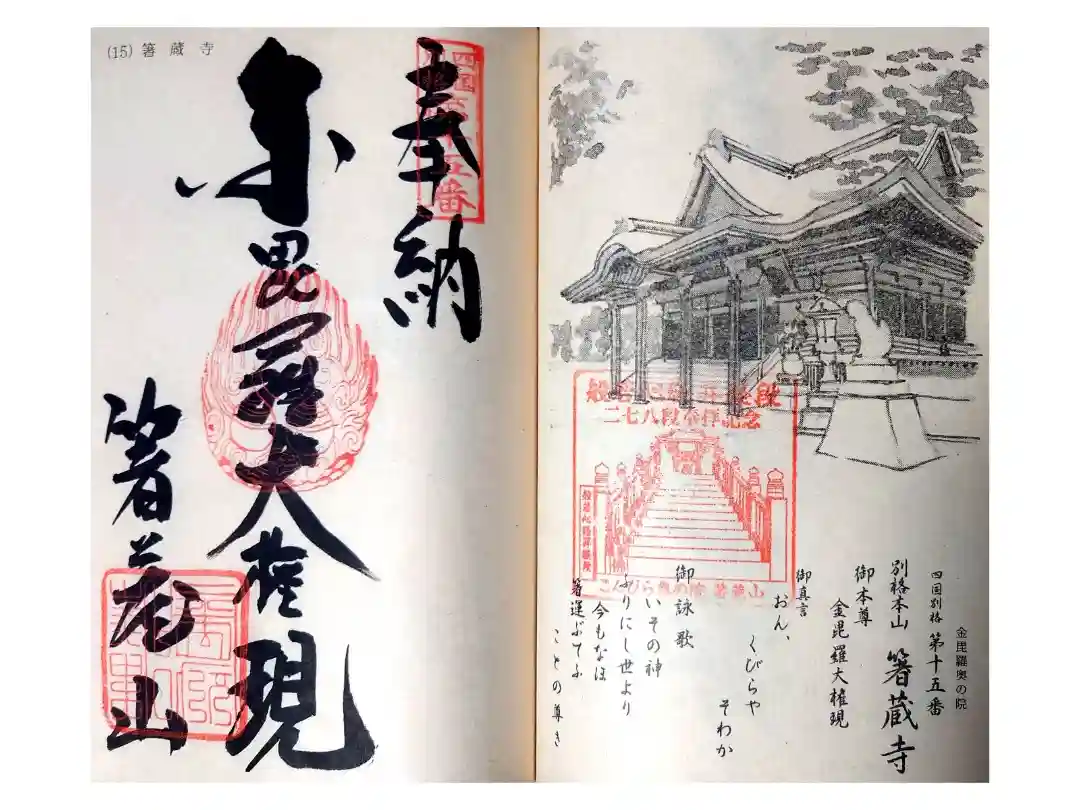 金毘羅奥の院
四国別格 第十五番
別格本山 箸蔵寺
御本尊
金毘羅大権現
御真言
おん、
くびらや
そわか
御詠歌
いその神
ふりにし世より
今もなほ
箸運ぶてふ
ことの尊き
二七八段参拝記念
こんぴら奥の院 箸蔵山
(15) 箸蔵寺
奉納
金毘羅大権現
箸蔵山